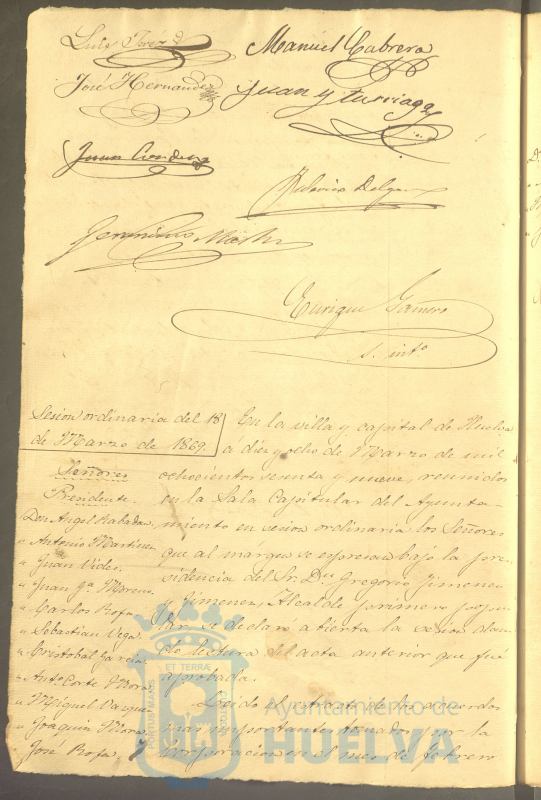 Luis Perez
Manuel Cabrera
José Hernandez
Juan Yturriaga
Juan
Federico Delgado
Jeronimo Martin
Enrique Gamero
s. intº
Sesion ordinaria del 18
de Marzo de 1869.
Señores
Presidente.
Don Angel Rabadan
" Antonio Martinez
" Juan Vides.
" Juan gª Moreno.
" Carlos Rofa.
" Sebastian Vega.
" Cristobal Garcia
" Antº Corte Mora
" Miguel Vazquez
" Joaquin Mora
José Rofa.
En la villa y capital de Huelva
á diez y ocho de Marzo de mil
ochocientos sesenta y nueve, reunidos
en la Sala Capitular del Ayunta-
miento en sesion ordinaria los Señores
que al márgen se espresan bajo la pre-
sidencia del Sr. Don Gregorio Jimenez
y Jimenez, Alcalde primero popu-
lar, se declaró abierta la sesion dan-
do lectura del acta anterior que fué
aprobada.
Leido el estracto de los acuerdos
mas importantes tomados por la
Corporacion en el mes de febrero
PORTUS MARIS
ET TERRÆ
CUSTODIA
Ayuntamiento de
HUELVA